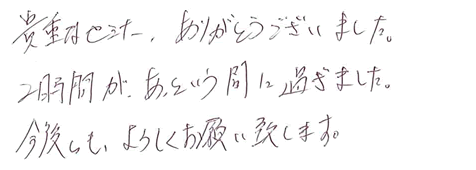 貴重なセミナー、ありがとうございました。
2時間が、あっという間に過ぎました。
今後とも、よろしくお願い致します。